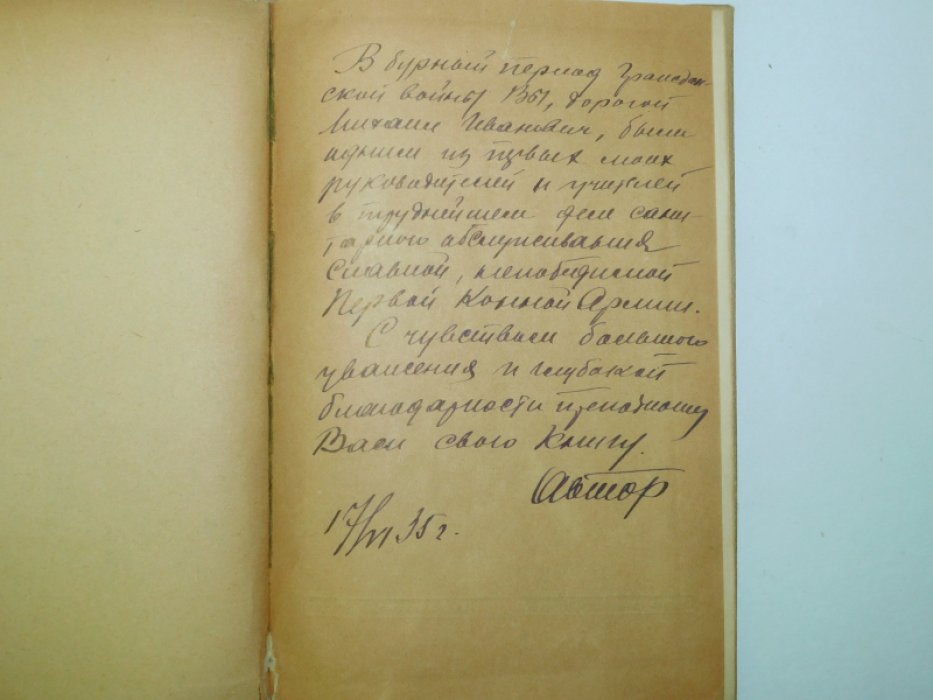 В бурный период Граждан-
ской войны ВЫ, дорогой
Михаил Иванович, были
одним из первых моих
руководителей и учителей
в труднейшем деле сани-
тарного обслуживания
славной, непобедимой
Первой Конной Армии.
С чувством большого
уважения и глубокой
благодарности преподношу
Вам свою книгу.
Автор
17/VI 35 г.